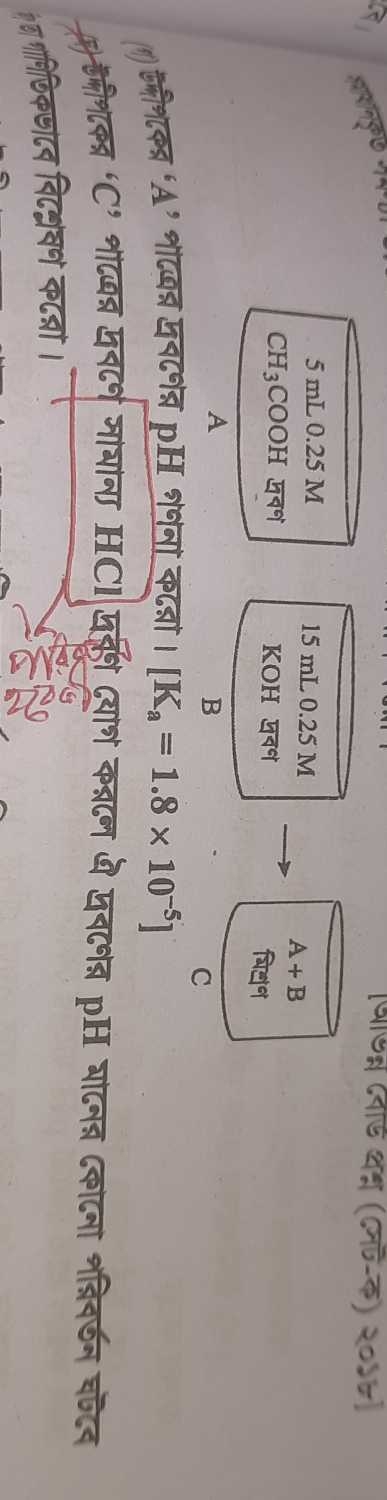 [অভিন্ন বোর্ড প্রশ্ন (সেট-ক) ২০১৮]
5 mL 0.25 M
CH₃COOH দ্রবণ
A
15 mL 0.25 M
KOH দ্রবণ
B
→
A + B
মিশ্রণ
C
(গ) উদ্দীপকের 'A' পাত্রের দ্রবণের pH গণনা করো। [Kₐ = 1.8 × 10⁻⁵]
(ঘ) উদ্দীপকের 'C' পাত্রের দ্রবণে সামান্য HCl দ্রবণ যোগ করলে ঐ দ্রবণের pH মানের কোনো পরিবর্তন ঘটবে
গাণিতিকভাবে বিশ্লেষণ করো।